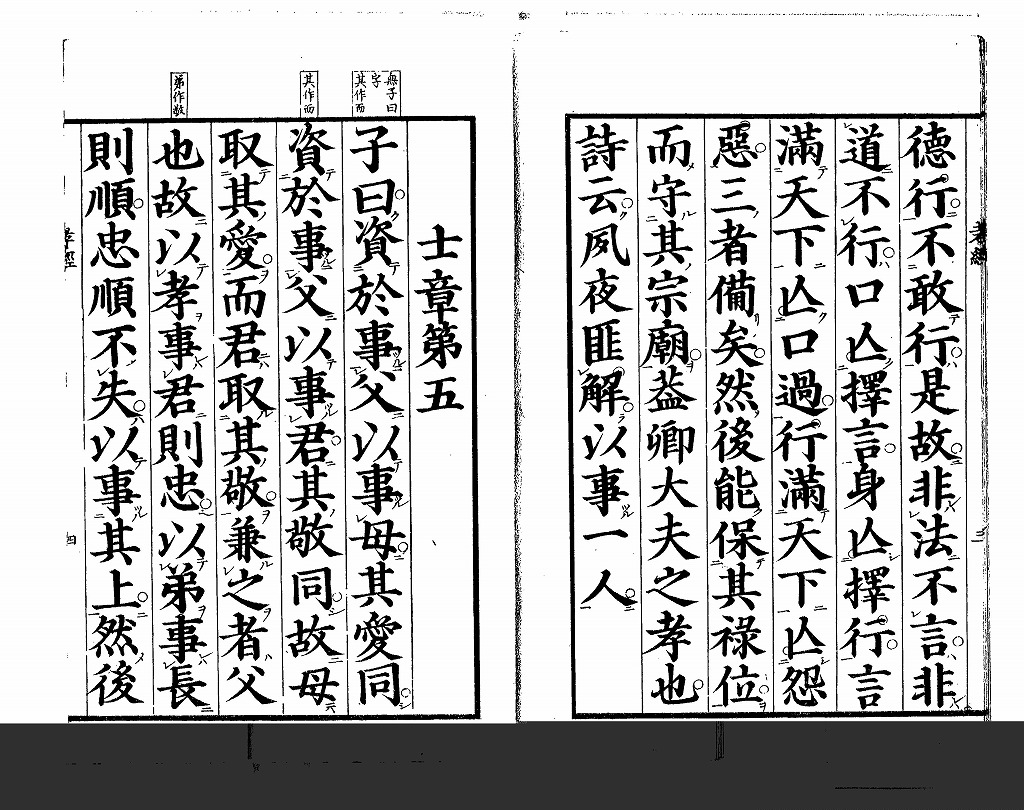 德行不敢行是故非法不言非
道不行口亾擇言身亾擇行言
滿天下亾口過行滿天下亾怨
惡三者備矣然後能保其祿位
而守其宗廟葢卿大夫之孝也
詩云夙夜匪解以事一人
孝經
三
士章第五
無子曰字
其作而
子曰資於事父以事母其愛同
其作而
資於事父以事君其敬同故母
取其愛而君取其敬兼之者父
弟作敬
也故以孝事君則忠以弟事長
則順忠順不失以事其上然後
孝經
四